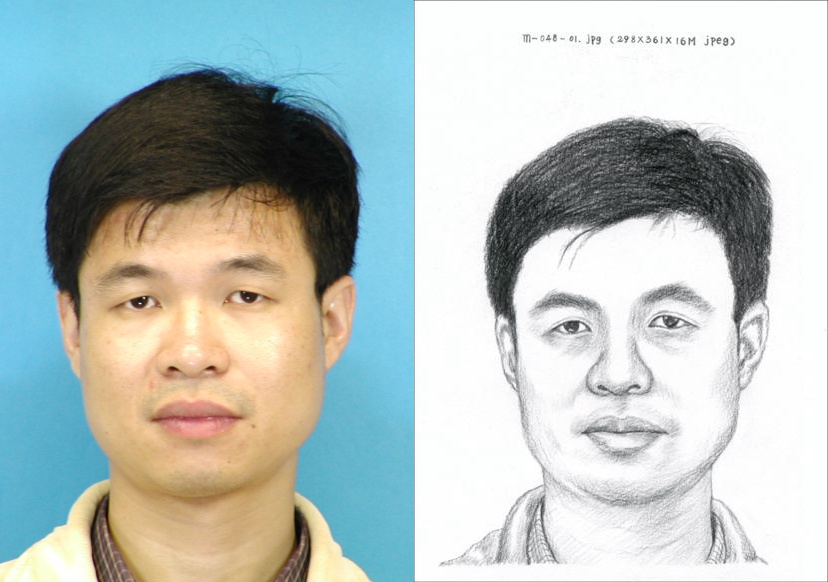 m-048-01.jpg (298X361X16M jpeg)